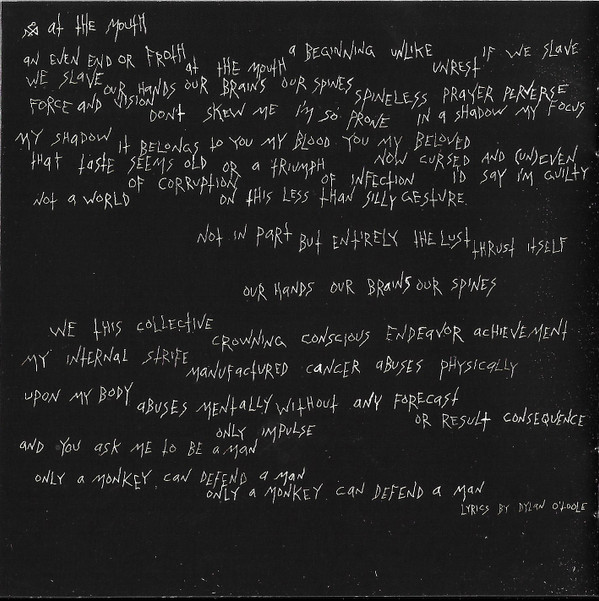 at the MOUTH
AN EVEN END OR FROTH at the MOUTH A BEGINNING UNLIKE UNREST IF WE SLAVE
WE SLAVE OUR HANDS OUR BRAINS OUR SPINES SPINELESS PRAYER PERVERSE
FORCE AND VISION DON'T SKEW ME I'M SO PRONE IN A SHADOW MY FOCUS
MY SHADOW IT BELONGS TO YOU MY BLOOD YOU MY BELOVED
that taste SEEMS OLD OR A TRIUMPH NOW CURSED AND (UN)EVEN
OF CORRUPTION OF INFECTION I'D SAY I'M GUILTY
NOT A WORLD ON THIS LESS THAN SILLY GESTURE.
NOT IN PART BUT ENTIRELY THE LUST THRUST ITSELF
OUR HANDS OUR BRAINS OUR SPINES
WE THIS COLLECTIVE CROWNING CONSCIOUS ENDEAVOR ACHIEVEMENT
MY INTERNAL STRIFE MANUFACTURED CANCER ABUSES PHYSICALLY
UPON MY BODY ABUSES MENTALLY WITHOUT ANY FORECAST
OR RESULT CONSEQUENCE
ONLY IMPULSE
AND YOU ASK ME TO BE A MAN
ONLY A MONKEY CAN DEFEND A MAN
ONLY A MONKEY CAN DEFEND A MAN
LYRICS BY DYLAN O'TOOLE